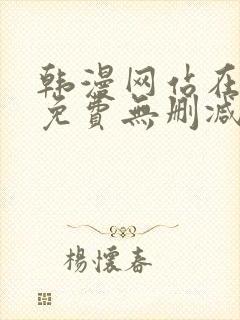 韩漫网站在
免費無删减
楊懷春